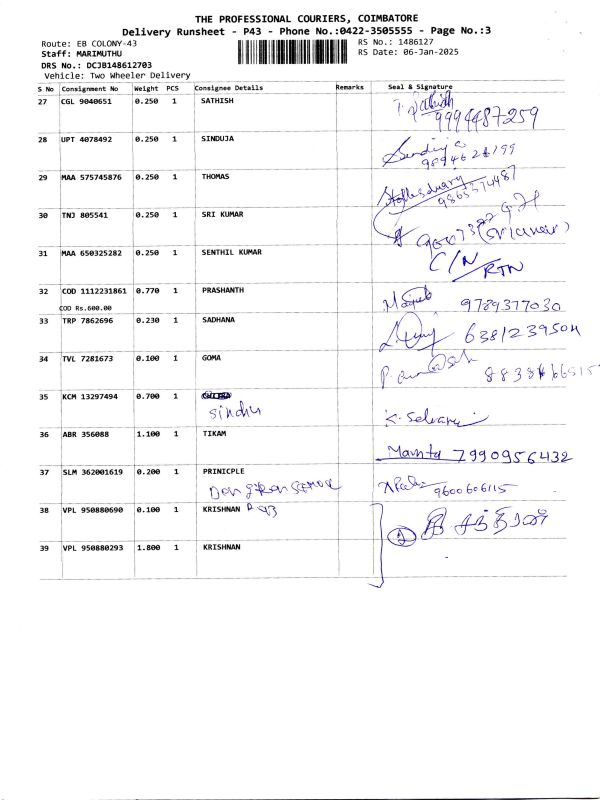 THE PROFESSIONAL COURIERS, COIMBATORE
Delivery Runsheet - P43 - Phone No.:0422-3505555 - Page No.:3
Route: EB COLONY-43
RS No.: 1486127
Staff: MARIMUTHU
RS Date: 06-Jan-2025
DRS No.: DCJB148612703
Vehicle: Two Wheeler Delivery
S No Consignment No Weight PCS Consignee Details Remarks Seal & Signature
27 CGL 9040651 0.250 1 SATHISH
9994487259
28 UPT 4078492 0.250 1 SINDUJA
29 MAA 575745876 0.250 1 THOMAS
9865374487
30 TNJ 805541 0.250 1 SRI KUMAR
31 MAA 650325282 0.250 1 SENTHIL KUMAR C/N
RTN
32 COD 1112231861 0.770 1 PRASHANTH 9789377030
COD Rs.600.00
33 TRP 7862696 0.230 1 SADHANA
34 TVL 7281673 0.100 1 GOMA
35 KCM 13297494 0.700 1
Sindhu
K. Selvani
36 ABR 356088 1.100 1 TIKAM Mamta 7990956432
37 SLM 362001619 0.200 1 PRINICPLE
9600606115
38 VPL 950880690 0.100 1 KRISHNAN
39 VPL 950880293 1.800 1 KRISHNAN